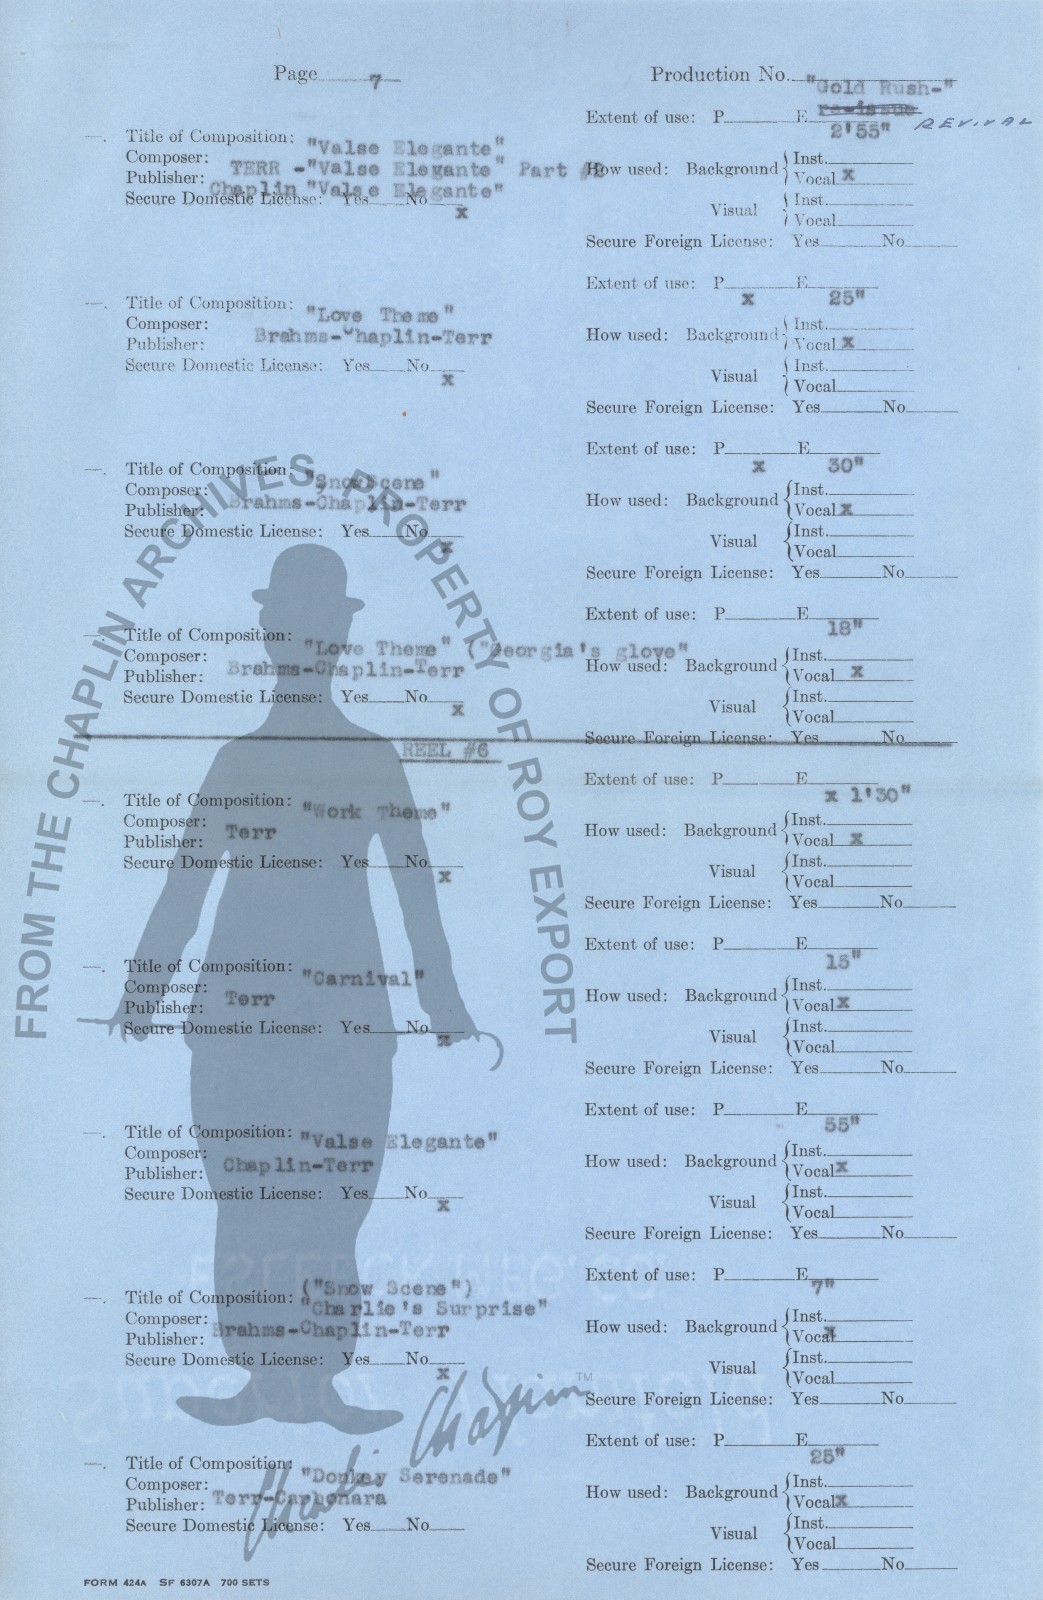 Page 7
Production No. "Gold Rush-"
re-issue REVIVAL
Extent of use: P E 2'55"
—. Title of Composition: "Valse Elegante"
Composer: TERR -"Valse Elegante" Part #2
Publisher: Chaplin "Valse Elegante"
Secure Domestic License: Yes No x
How used: Background Inst.
Vocal x
Visual Inst.
Vocal
Secure Foreign License: Yes No
Extent of use: P x E 25"
—. Title of Composition: "Love Theme"
Composer: Brahms-Chaplin-Terr
Publisher:
Secure Domestic License: Yes No x
How used: Background Inst.
Vocal x
Visual Inst.
Vocal
Secure Foreign License: Yes No
Extent of use: P x E 30"
—. Title of Composition: "Snow Scene"
Composer: Brahms-Chaplin-Terr
Publisher:
Secure Domestic License: Yes No x
How used: Background Inst.
Vocal x
Visual Inst.
Vocal
Secure Foreign License: Yes No
Extent of use: P E 18"
—. Title of Composition: "Love Theme" ("Georgia's glove"
Composer: Brahms-Chaplin-Terr
Publisher:
Secure Domestic License: Yes No x
How used: Background Inst.
Vocal x
Visual Inst.
Vocal
Secure Foreign License: Yes No
REEL #6
Extent of use: P E x 1'30"
—. Title of Composition: "Work Theme"
Composer: Terr
Publisher:
Secure Domestic License: Yes No x
How used: Background Inst.
Vocal x
Visual Inst.
Vocal
Secure Foreign License: Yes No
Extent of use: P E 15"
—. Title of Composition: "Carnival"
Composer: Terr
Publisher:
Secure Domestic License: Yes No x
How used: Background Inst.
Vocal x
Visual Inst.
Vocal
Secure Foreign License: Yes No
Extent of use: P E 55"
—. Title of Composition: "Valse Elegante"
Composer: Chaplin-Terr
Publisher:
Secure Domestic License: Yes No x
How used: Background Inst.
Vocal x
Visual Inst.
Vocal
Secure Foreign License: Yes No
Extent of use: P E 7"
("Snow Scene")
—. Title of Composition: "Charlie's Surprise"
Composer: Brahms-Chaplin-Terr
Publisher:
Secure Domestic License: Yes No x
How used: Background Inst.
Vocal x
Visual Inst.
Vocal
Secure Foreign License: Yes No
Extent of use: P E 25"
—. Title of Composition: "Donkey Serenade"
Composer: Terr-Carbonara
Publisher:
Secure Domestic License: Yes No
How used: Background Inst.
Vocal x
Visual Inst.
Vocal
Secure Foreign License: Yes No
FORM 424A SF 6307A 700 SETS
FROM THE CHAPLIN ARCHIVES PROPERTY OF ROY EXPORT
Charlie Chaplin TM